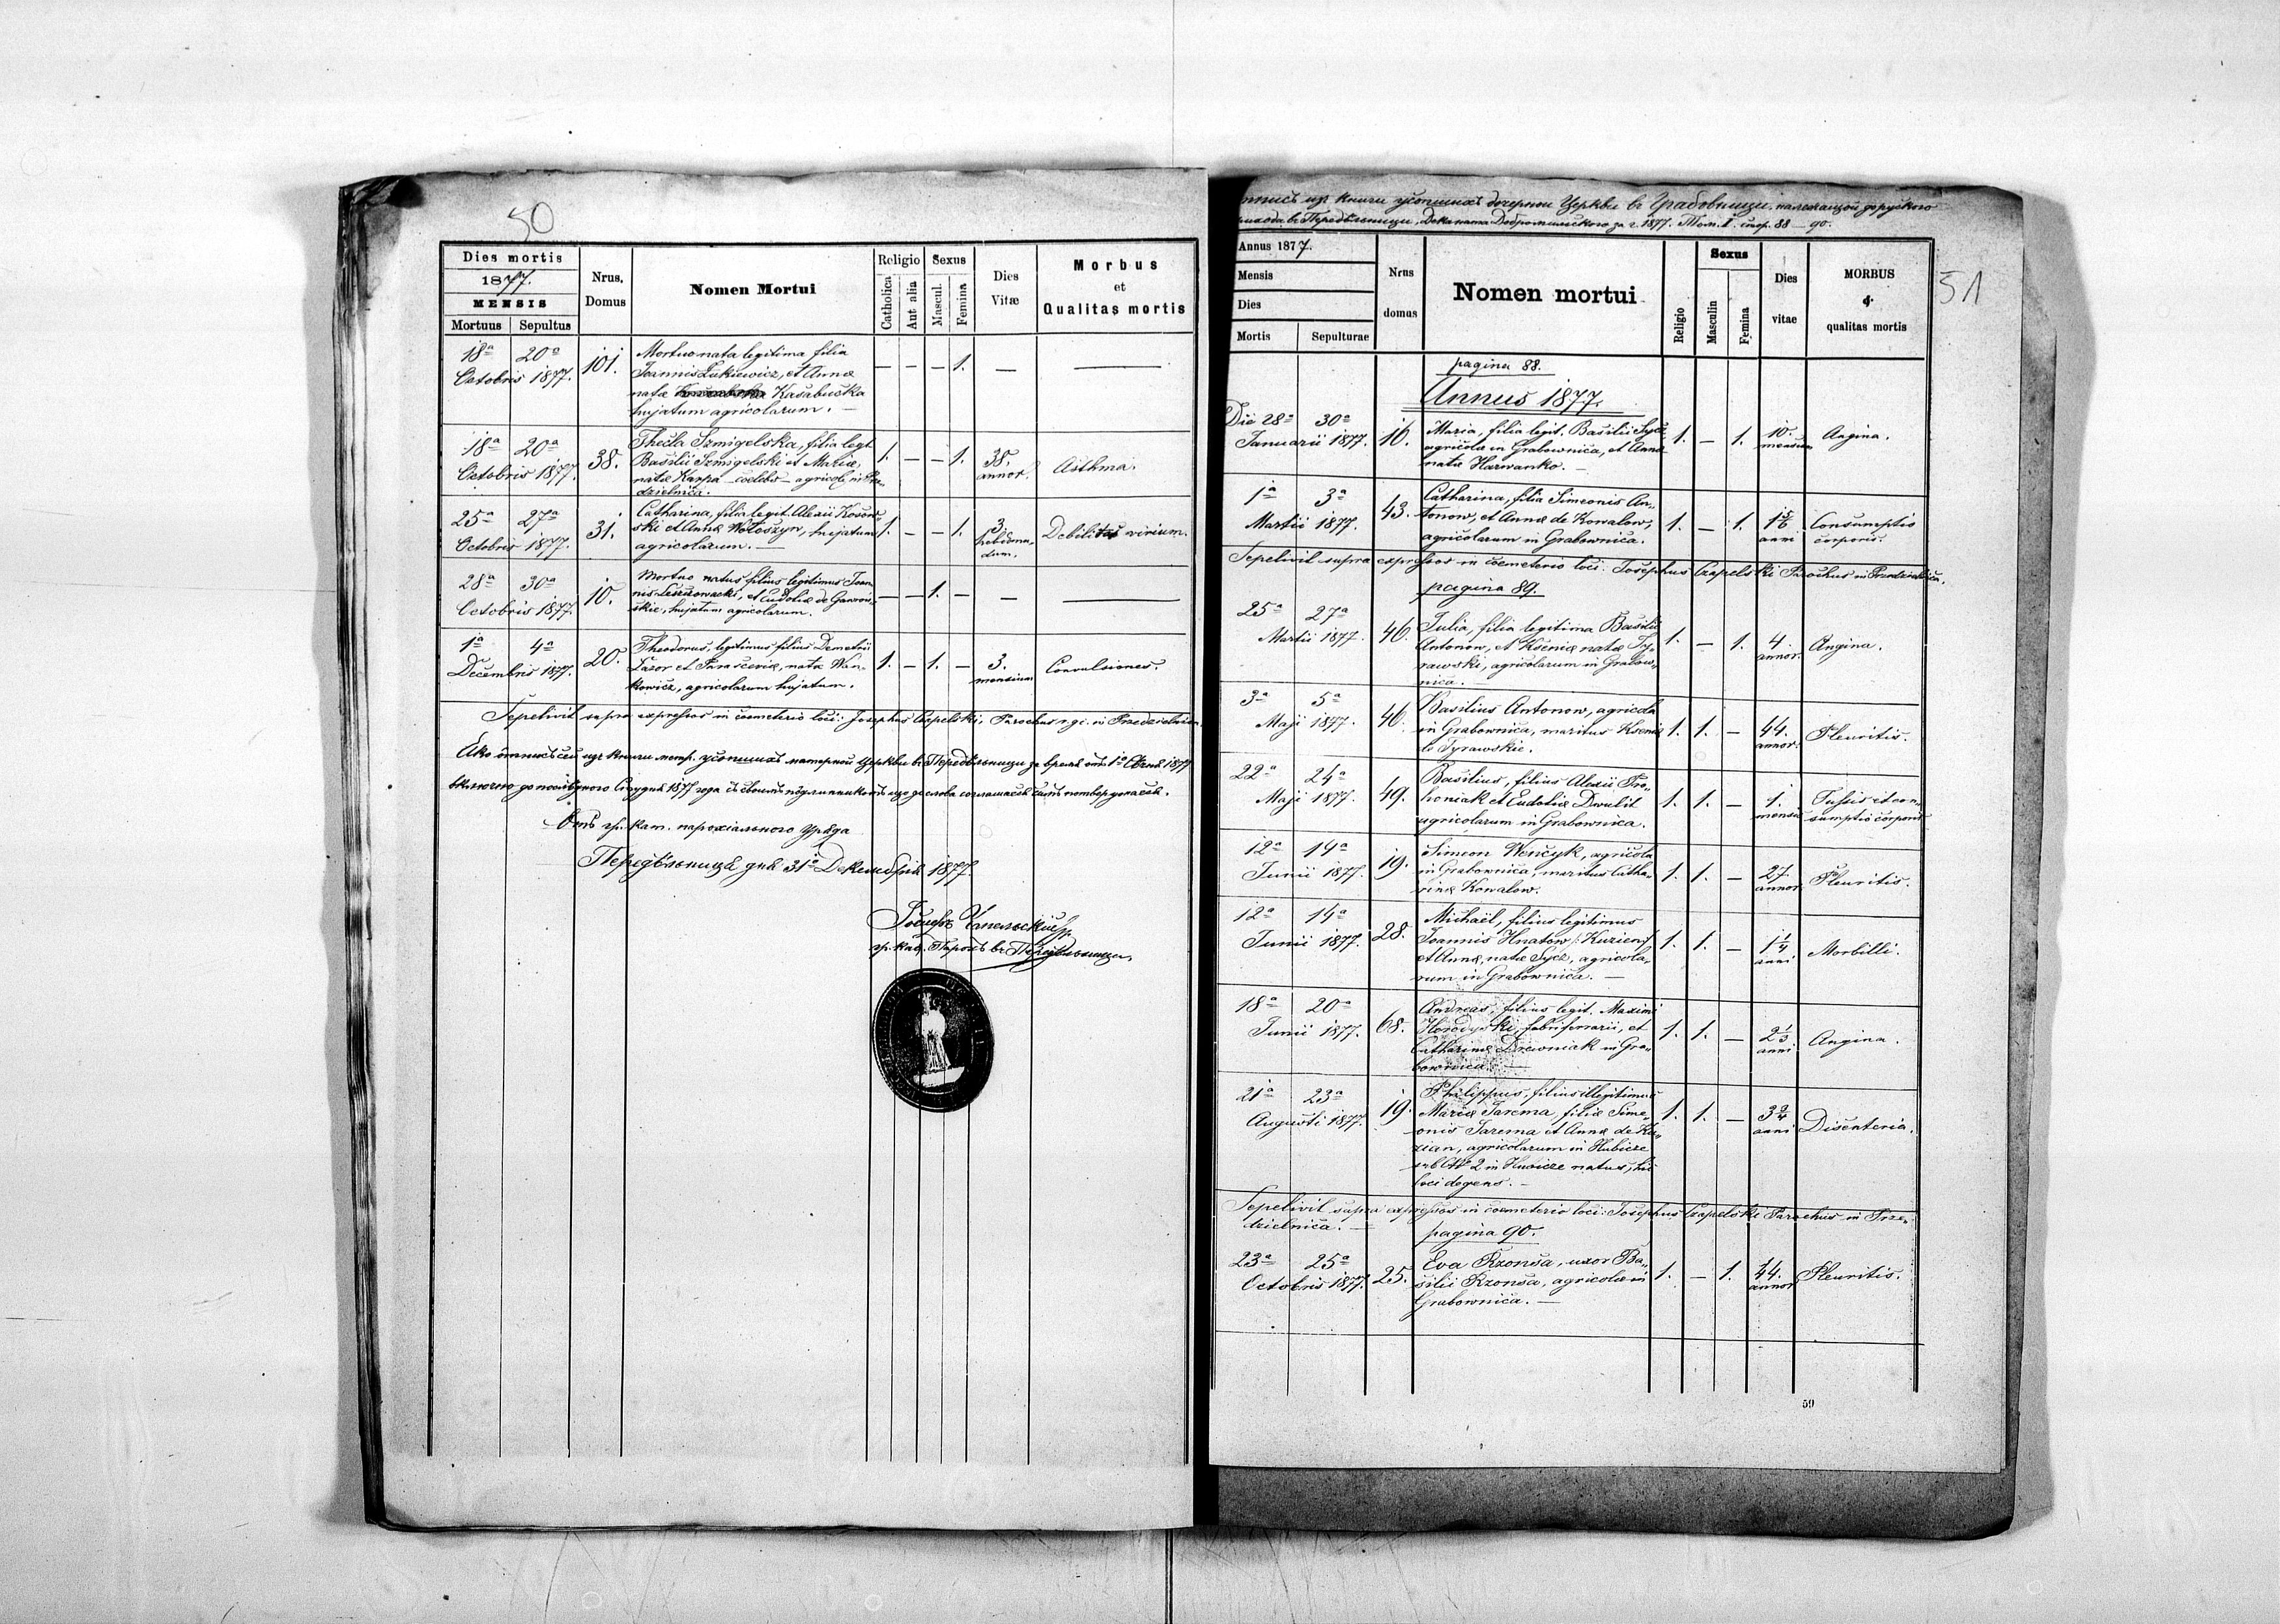 50
Dies mortis
1877.
MENSIS
Mortuus Sepultus
Nrus. Domus
Nomen Mortui
Religio
Catholica
Aut alia
Sexus
Mascul.
Femina
Dies Vitæ
Morbus
et
Qualitas mortis
18ª 20ª
Octobris 1877.
101.
Mortuo nata legitima filia
Joannis Łukiewicz, et Annæ
natæ Kasabuska
hujatum agricolarum. —
— — — 1. — —
18ª 20ª
Octobris 1877.
38.
Thecla Szmigelska, filia legt.
Basilii Szmigelski et Mariæ,
natæ Karpa – coelebs – agricolæ in Prze-
dzielnica.
1. — — 1.
38. annor.
Asthma.
25ª 27ª
Octobris 1877.
31.
Catharina, filia legit. Alexii Kosow-
ski et Annæ Wołoszyn, hujatum
agricolarum. —
1. — — 1.
3. hebdoma-
dum.
Debilitas virium.
28ª 30ª
Octobris 1877.
10.
Mortuo natus filius legitimus Joan-
nis et Eudoxiæ de
hujatum agricolarum.
— — 1. — — —
1ª 4ª
Decembris 1877.
20.
Theodorus, legitimus filius Demetrii
Łazor et Parasceviæ, natæ Wań-
kowicz, agricolarum hujatum.
1. — 1. —
3. mensium
Convulsiones.
Sepelivit supra expressos in coemeterio loci: Josephus Czapelski, Parochus r. gc. in Przedzielnica.
Ако отписъ сей изъ книги метр. усопшихъ матерной Церкви въ Передѣльници за время отъ 1º 1877
включно до послѣдного Студня 1877 года съ своимъ подлинникомъ слова соглашаеся симъ потверждаеся.
Отъ гр. кат. парохіального Уряда
Передѣльница дня 31º Декемврія 1877.
Іосифъ Чапельскій
гр. кат. Парохъ въ Передѣльници
51
Отписъ изъ книги усопшихъ дочерной Церкви въ Грабовници, належащой до руского
прихода въ Передѣльници, Деканата Добромильского за г. 1877. Том. I. стор. 88 — 90.
Annus 1877.
Mensis
Dies
Mortis Sepulturae
Nrus domus
Nomen mortui
Religio
Sexus
Masculin
Femina
Dies vitae
MORBUS
&
qualitas mortis
pagina 88.
Annus 1877.
Die 28ª 30ª
Januarii 1877.
16.
Maria, filia legit. Basilii Sycz
agricolæ in Grabownica, et Annæ
natæ Harwanko. —
1. — 1.
10. mensium
Angina.
1ª 3ª
Martii 1877.
43.
Catharina, filia Simeonis An-
tonow, et Annæ de Kowalow,
agricolarum in Grabownica.
1. — 1.
1 5/6 anni
Consumptio
corporis.
Sepelivit supra expressos in coemeterio loci: Josephus Czapelski Parochus in Przedzielnica.
pagina 89.
25ª 27ª
Martii 1877.
46.
Julia, filia legitima Basilii
Antonow, et Kseniæ natæ Ty-
rawski, agricolarum in Grabow-
nica. —
1. — 1.
4. annor.
Angina.
3ª 5ª
Maji 1877.
46.
Basilius Antonow, agricola
in Grabownica, maritus Kseniæ
de Tyrawskie.
1. 1. —
44. annor.
Pleuritis.
22ª 24ª
Maji 1877.
49.
Basilius, filius Alexii Pro-
honiak et Eudokiæ Dwulit
agricolarum in Grabownica.
1. 1. —
1. mensis
Tussis et con-
sumptio corporis
12ª 14ª
Junii 1877.
19.
Simeon Wenczyk, agricola
in Grabownica, maritus Catha-
rinæ Kowalow.
1. 1. —
27. annor.
Pleuritis.
12ª 14ª
Junii 1877.
28.
Michaël, filius legitimus
Joannis Hnatow /: Kurien :/
et Annæ, natæ Sycz, agricola-
rum in Grabownica. —
1. 1. —
1 1/4 anni
Morbilli.
18ª 20ª
Junii 1877.
68.
Andreas, filius legit. Maximi
Horodyski, fabri ferrarii, et
Catharinæ Drewniak in Gra-
bownica. —
1. 1. —
2 1/3 anni
Angina.
21ª 23ª
Augusti 1877.
19.
Philippus, filius illegitimus
Mariæ Jarema, filiæ Sime-
onis Jarema et Annæ de Ku-
zian, agricolarum in Hubicze
sub № 2 in Hubicze natus, hic
loci degens. —
1. 1. —
3 3/4 anni
Disenteria.
Sepelivit supra expressos in coemeterio loci: Josephus Czapelski Parochus in Prze-
dzielnica. —
pagina 90.
23ª 25ª
Octobris 1877.
25.
Eva Rzonsa, uxor Ba-
silii Rzonsa, agricolæ in
Grabownica. —
1. — 1.
44. annor.
Pleuritis.
59